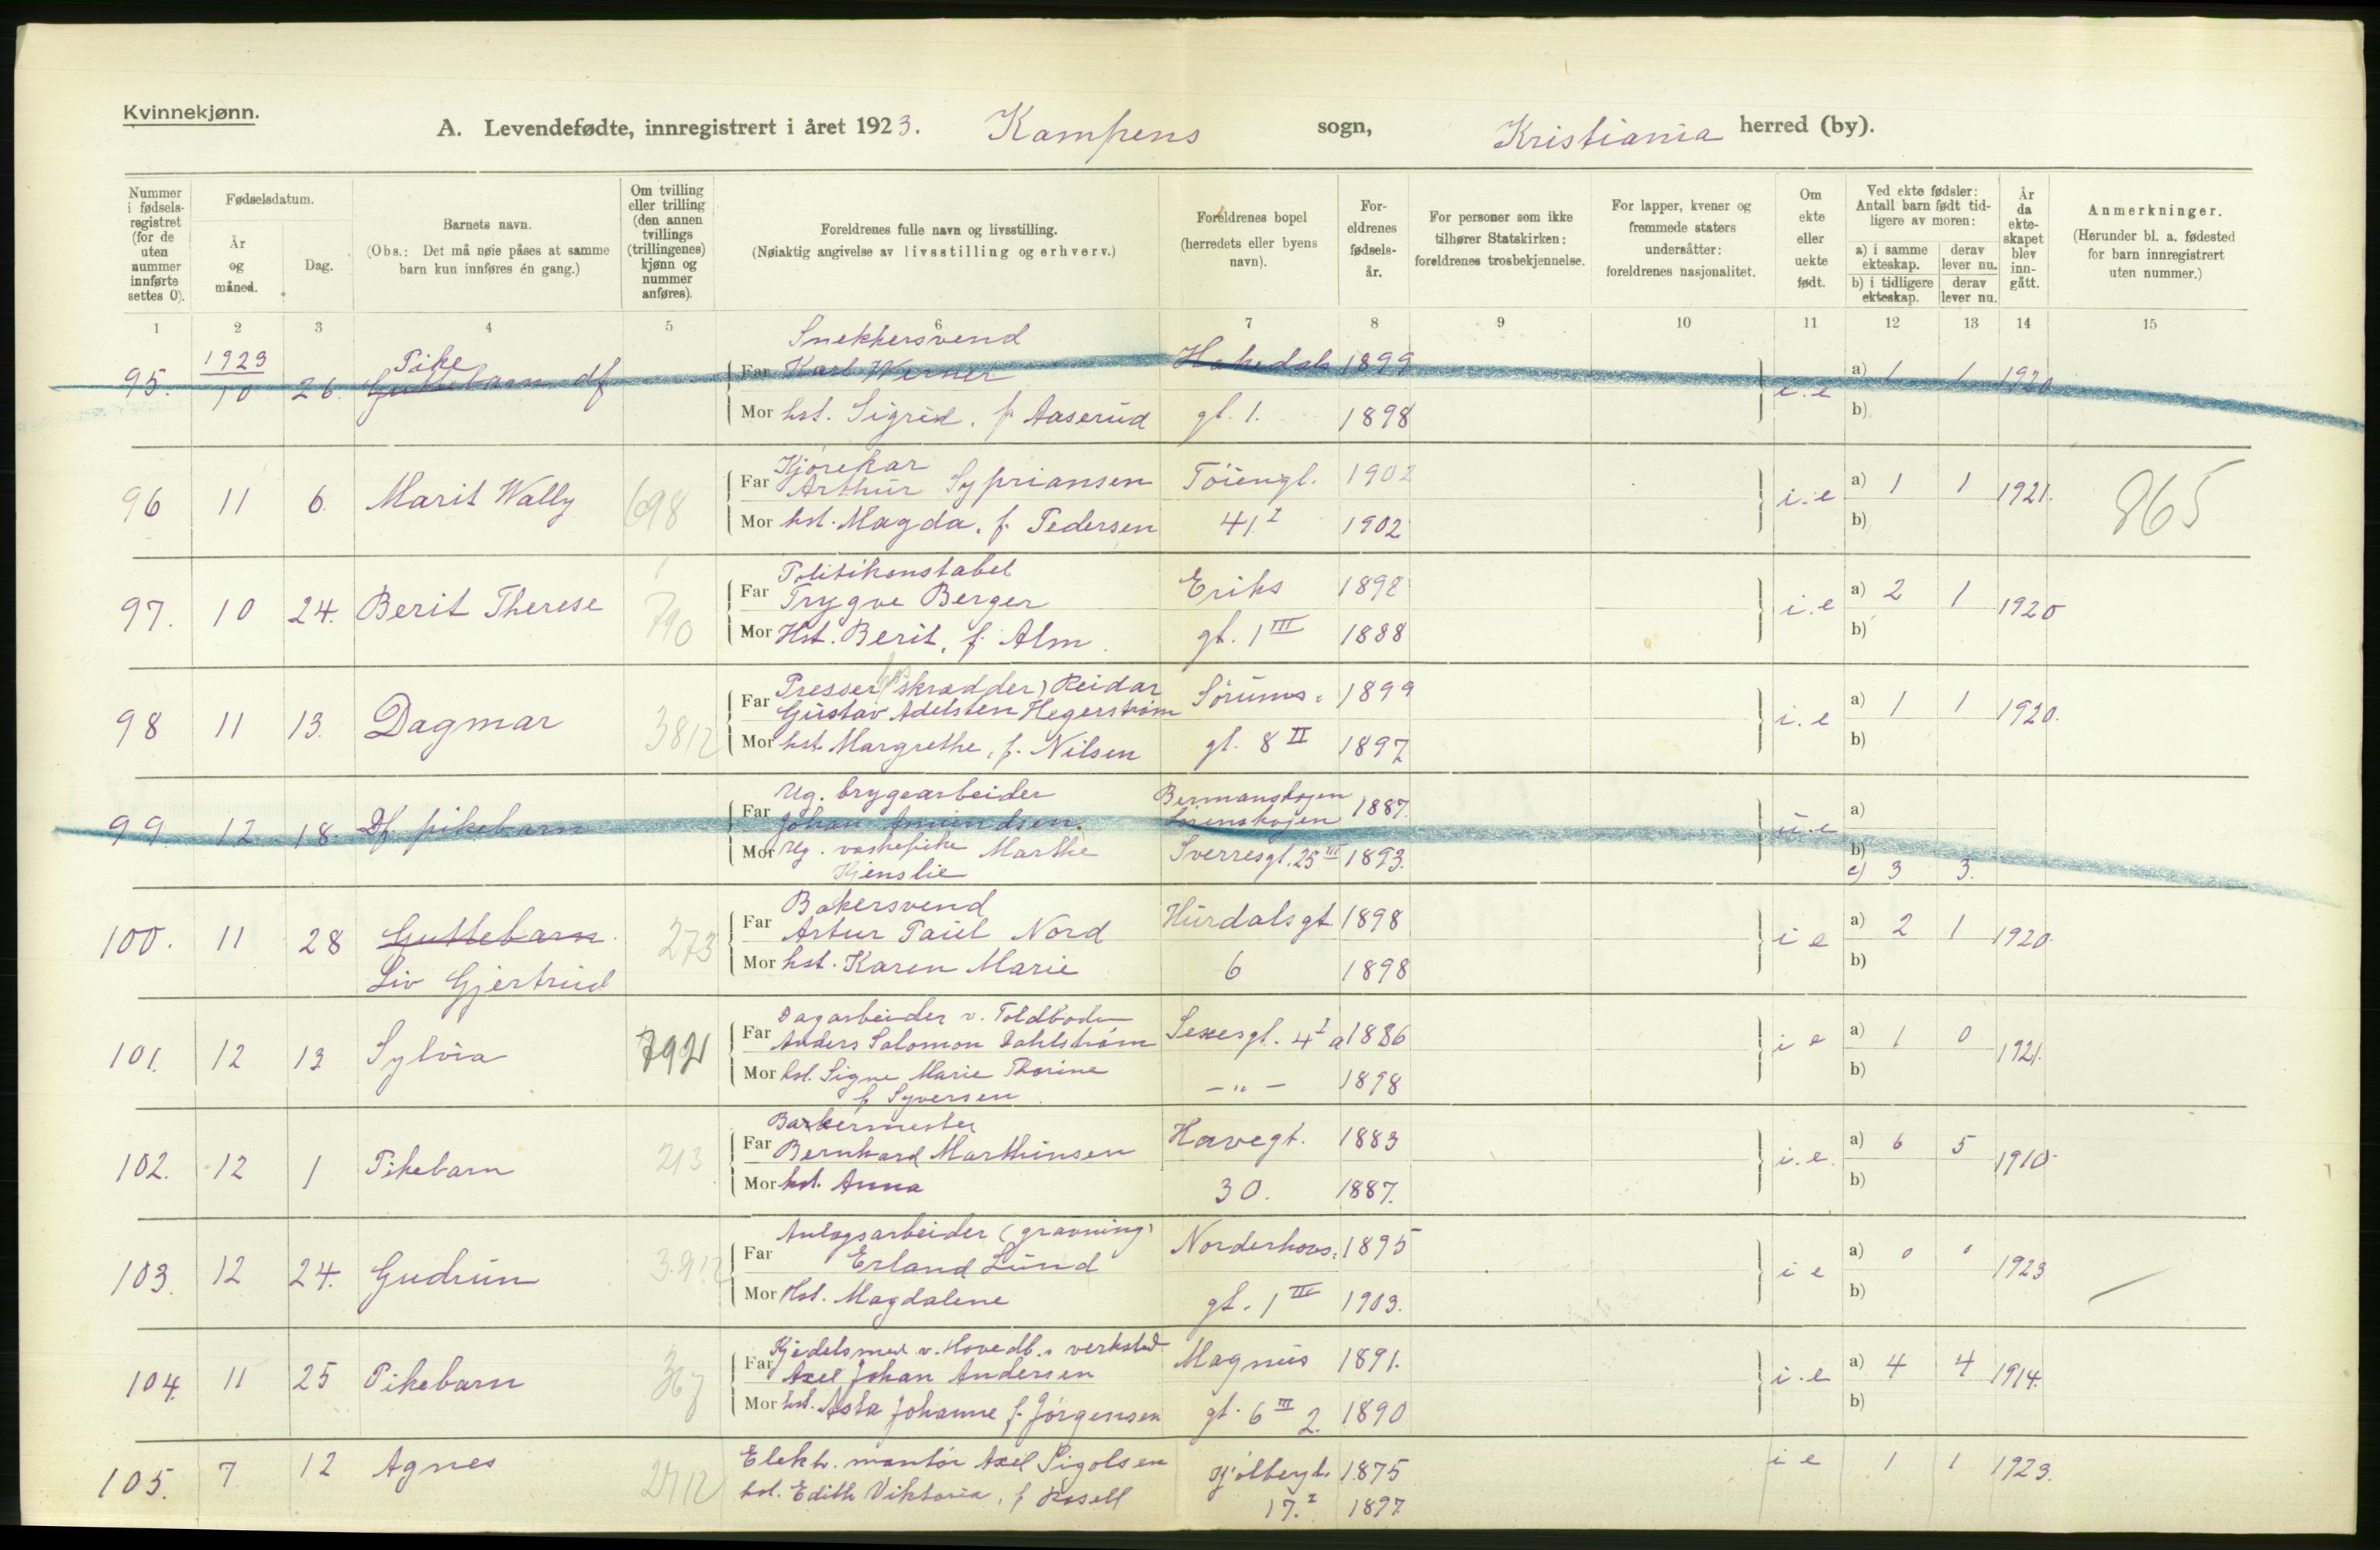 Kvinnekjønn.
A. Levendefødte, innregistrert i året 1923. Kampens sogn, Kristiania herred (by).
Nummer i fødselsregistret (for de uten nummer innførte settes 0).
Fødselsdatum.
År og måned.
Dag.
Barnets navn.
(Obs.: Det må nøie påses at samme barn kun innføres én gang.)
Om tvilling eller trilling (den annen tvillings (trillingenes) kjønn og nummer anføres).
Foreldrenes fulle navn og livsstilling.
(Nøiaktig angivelse av livsstilling og erhverv.)
Foreldrenes bopel (herredets eller byens navn).
Foreldrenes fødselsår.
For personer som ikke tilhører Statskirken: foreldrenes trosbekjennelse.
For lapper, kvener og fremmede staters undersåtter: foreldrenes nasjonalitet.
Om ekte eller uekte født.
Ved ekte fødsler: Antall barn født tidligere av moren:
a) i samme ekteskap. derav lever nu.
b) i tidligere ekteskap. derav lever nu.
År da ekteskapet blev inngått.
Anmerkninger.
(Herunder bl. a. fødested for barn innregistrert uten nummer.)
1 2 3 4 5 6 7 8 9 10 11 12 13 14 15
Snekkersvend
1923 Pike
95. 10 26. Guttebarn df Far Karl Werner Hakedals 1899 i.e a) 1 1 1920
Mor hst. Sigrid, f. Aaserud gt. 1. 1898 b)
Kjørekar
96 11 6. Marit Wally 698 Far Arthur Sypriansen Töiengt. 1902 i.e a) 1 1 1921. 865
Mor hst. Magda, f. Pedersen 41 I 1902 b)
Politikonstabel
97. 10 24. Berit Therese 790 Far Trygve Berger Eriks 1898 i.e a) 2 1 1920
Mor Hst. Berit, f. Alm. gt. 1 III 1888 b)
Presser (hos skrædder) Reidar
98 11 13. Dagmar 3812 Far Gustav Adelsten Hegerstrøm Sörums 1899 i.e a) 1 1 1920.
Mor hst. Margrethe, f. Nilsen gt. 8 II 1897 b)
Ug. bryggearbeider Bermanskogen
99. 12 18. Df. pikebarn Far Johan Amundsen. Lörenskogen 1887. u.e a)
Mor Ug. vaskepike Marthe Sverresgt. 25 III 1893. b)
Hjenslie c) 3 3.
Bakersvend
100. 11 28 Guttebarn 273 Far Artur Paul Nord Hurdalsgt. 1898 i e a) 2 1 1920.
Liv Gjertrud Mor hst. Karen Marie 6 1898 b)
Dagarbeider v. Toldboden
101. 12 13 Sylvia 792 Far Anders Salomon Dahlstrøm Sexesgt. 4 I a 1886 i e a) 1 0 1921.
Mor hst. Signe Marie Thorine - " - 1898 b)
f. Syversen
Barkermester
102. 12 1 Pikebarn 213 Far Bernhard Marthinsen Havegt. 1883 i.e. a) 6 5 1910.
Mor hst. Anna 30. 1887. b)
Anlægsarbeider (gravning)
103. 12 24. Gudrun 3912 Far Erland Lund Norderhovs 1895 i e a) 0 0 1923
Mor Hst. Magdalene gt. 1 III 1903. b)
Kjedelsmed v. Hovedb.s verksted
104. 11 25 Pikebarn 367 Far Axel Johan Andersen Magnus 1891. i.e a) 4 4 1914.
Mor hst. Asta Johanne f. Jörgensen gt. 6 III 2. 1890 b)
105. 7 12 Agnes 2712 Elektr. montör Axel Sigolsen Kjölberggt. 1875 i e 1 1 1923.
hst. Edith Viktoria, f. Rosell 17. I 1897